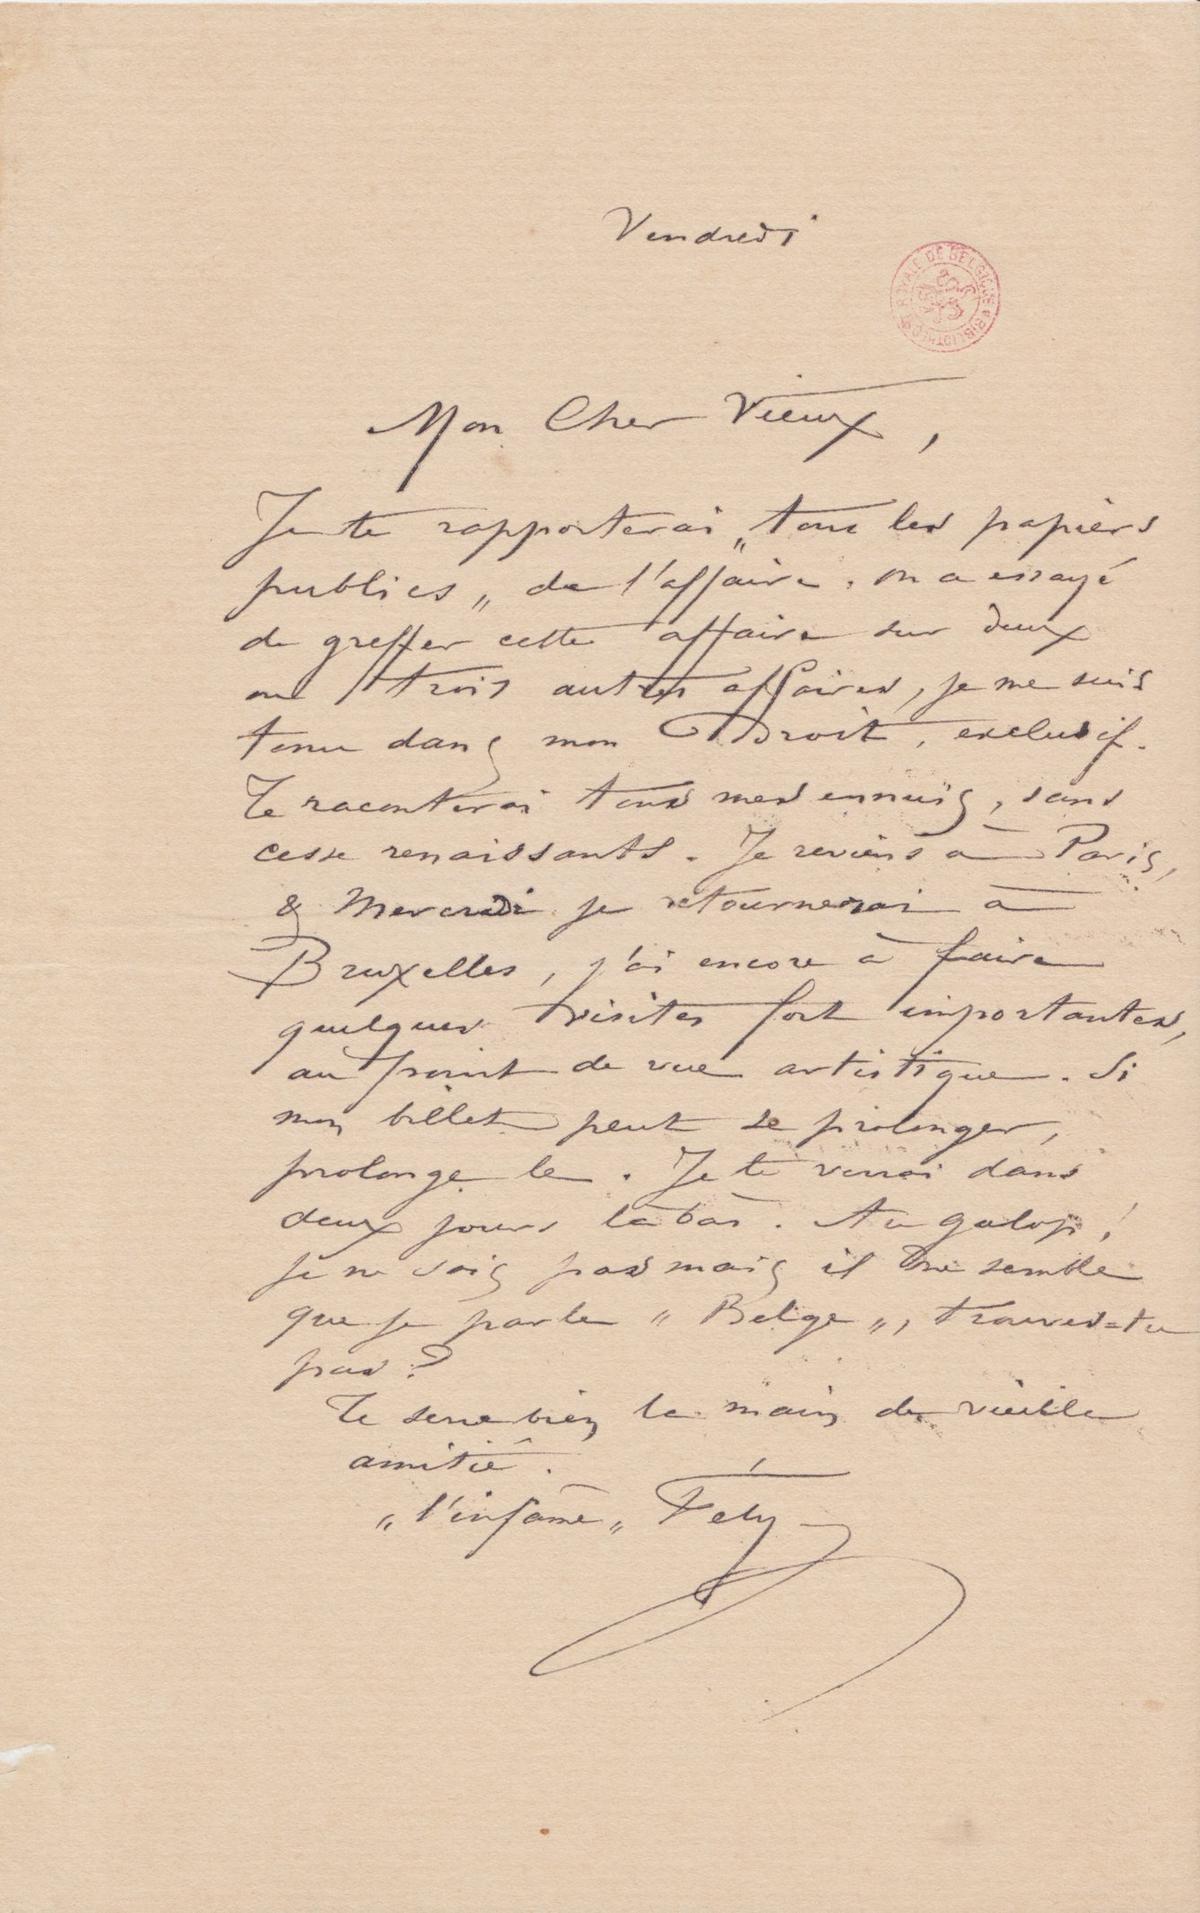 Vendredi
BIBLIOTHÈQUE ROYALE DE BELGIQUE
Mon Cher Vieux,
Je te rapporterai „tous les papiers
publics„ de l'affaire. on a essayé
de greffer cette affaire sur deux
ou trois autres affaires, je me suis
tenu dans mon Droit, exclusif.
Te raconterai tous mes ennuis, sans
cesse renaissants. Je reviens à Paris,
& Mercredi je retournerai à
Bruxelles, j'ai encore à faire
quelques visites fort importantes,
au point de vue artistique. Si
mon billet peut se prolonger,
prolonge le. Je te verrai dans
deux jours là bas. Au galop!
je ne sais pas mais il me semble
que je parle „Belge„, trouves=tu
pas?
Te serre bien la main de vieille
amitié.
„l'infâme„ Fély